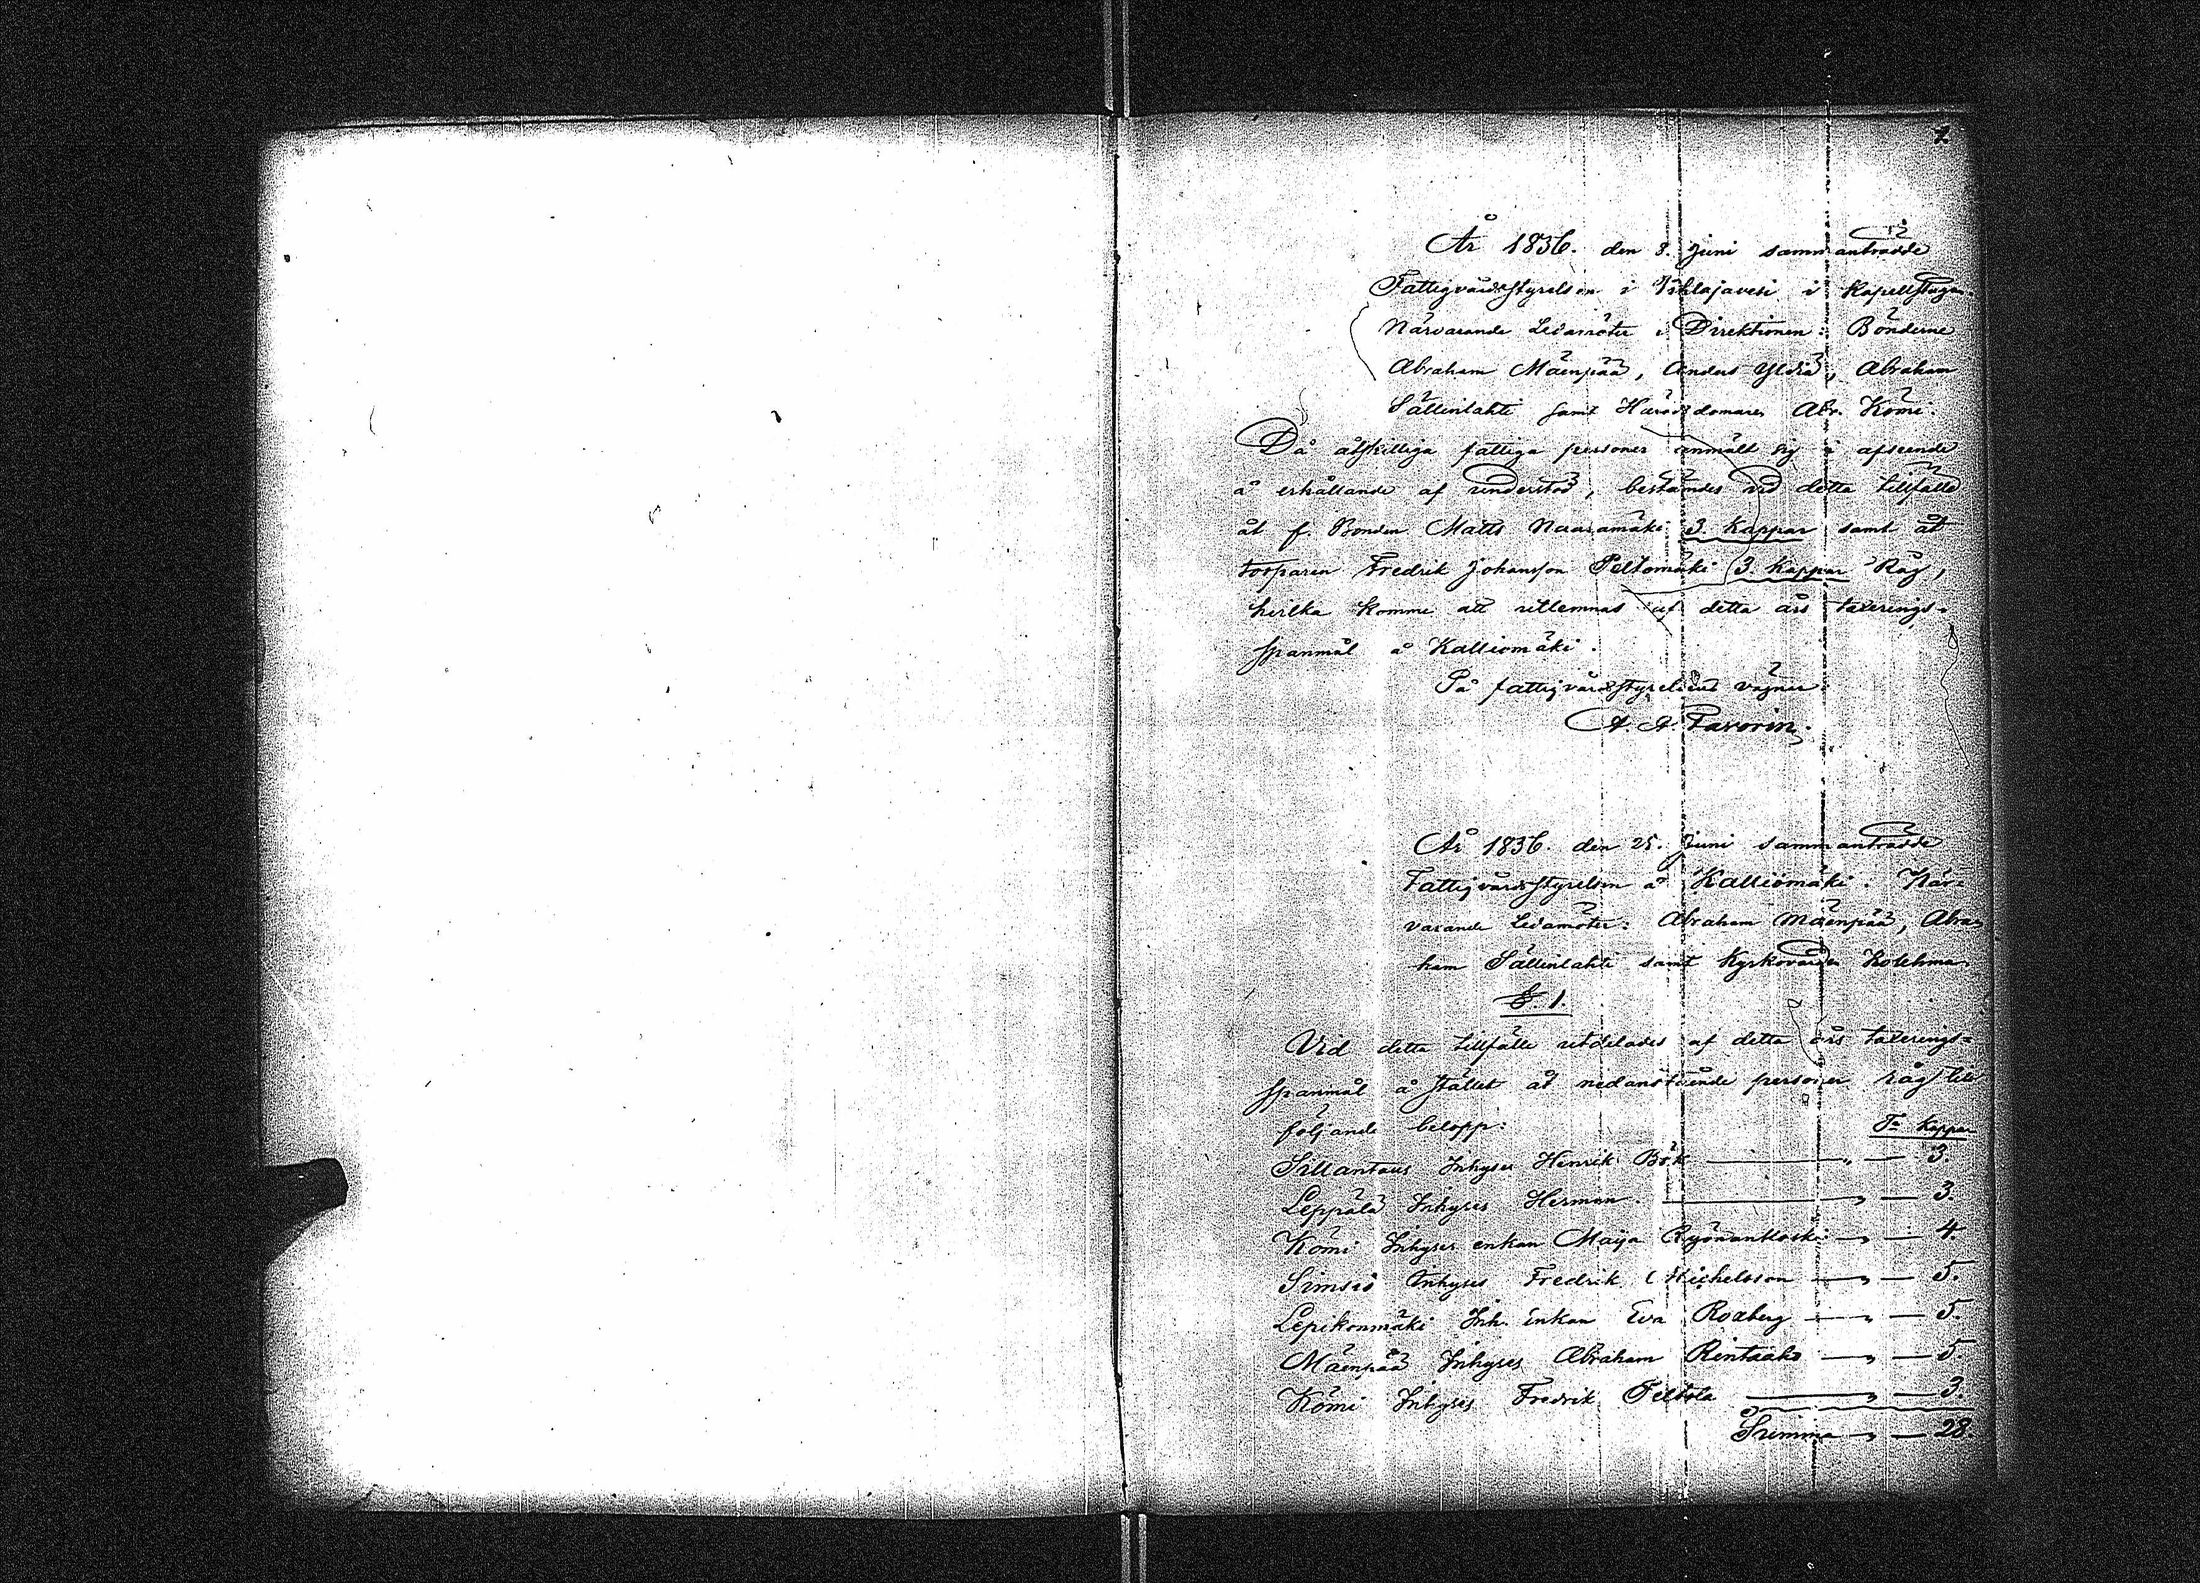 1.
År 1836. den 8. Juni sammanträdde
Fattigvårdsstyrelsen i Pihlajavesi i Kapellstugan.
Närvarande Ledamöter i Direktionen: Bönderne
Abraham Mäenpää, Anders Yliä, Abraham
Sällinlahti samt Häradsdomaren Abr. Kömi.
Då åtskilliga fattiga personer anmält sig i afseende
å erhållande af understöd, bestämdes vid detta tillfälle
åt f. Bonden Matts Naaramäki 3. Kappar samt åt
torparen Fredrik Johansson Peltomäki 3 Kappar Råg,
hvilka komme att utlemnas af detta års taxerings-
spanmål å Kalliomäki.
På fattigvårdsstyrelsens vägnar:
A. A. Favorin.
År 1836. den 25. Juni sammanträdde
Fattigvårdsstyrelsen å Kalliomäki. När-
varande Ledamöter: Abraham Mäenpää, Abra-
ham Sällinlahti samt Kyrkovärden
§. 1.
Vid detta tillfälle utdelades af detta års taxerings-
spanmål å stället åt nedanstående personer råg till
följande belopp: Tr Kappar
Sillantaus Inhyses Henrik Bök — „ — 3.
Leppälä Inhyses Herman. — „ — 3.
Kömi Inhyses enkan Maija Ryönänkoski — „ — 4.
Simsiö Inhyses Fredrik Michelsson — „ — 5.
Lepikonmäki Inh. enkan Eva Roxberg — „ — 5.
Mäenpää Inhyses Abraham Rintaaho — „ — 5
Kömi Inhyses Fredrik Peltola — „ — 3.
Summa „ — 28